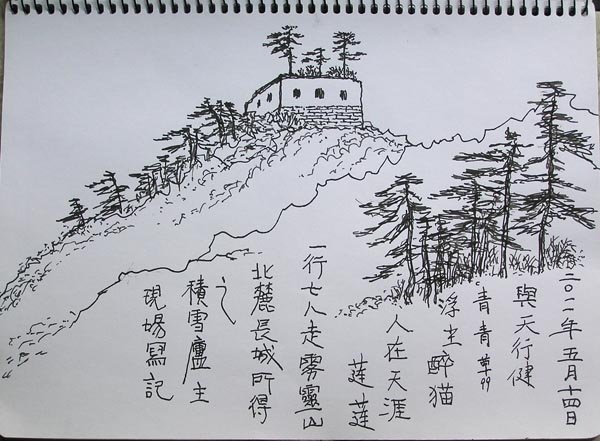 二〇一一年五月十四日
與天行健
青青草99
浮尘醉猫
人在天涯
莲莲
一行七人走雾靈山
北麓長城所得
之
積雪廬主
現場寫記